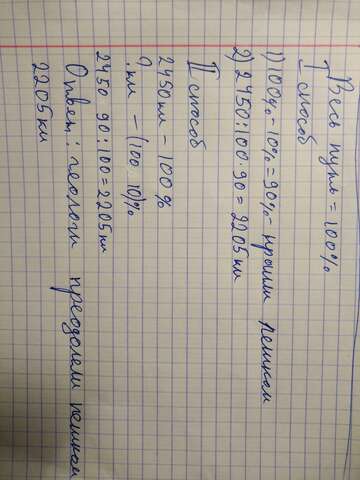 Весь путь = 100%
I способ
1) 100% - 10% = 90% - прошли пешком
2) 2450:100·90 = 2205 км
II способ
2450 км - 100%
? км - (100-10)%
2450·90:100 = 2205 км
Ответ: геологи преодолели пешком
2205 км